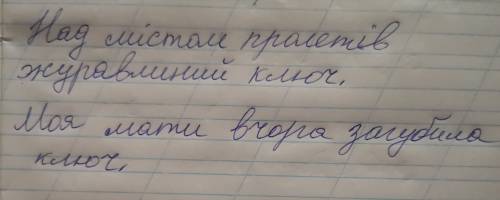 Над містом пролетів
журавлиний ключ.
Моя мати вчора загубила
ключ.